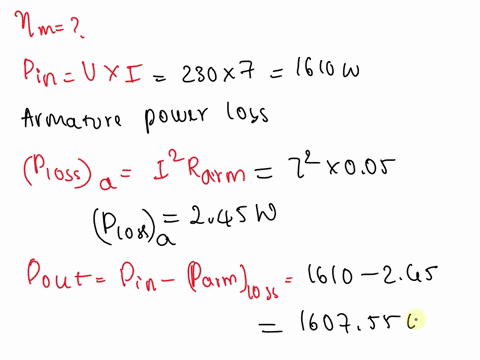 ηm = ?
Pin = U × I = 230 × 7 = 1610 W
Armature power loss
(Ploss)a = I² Rarm = 7² × 0.05
(Ploss)a = 2.45 W
Pout = Pin − (Parm)loss = 1610 − 2.45
= 1607.55